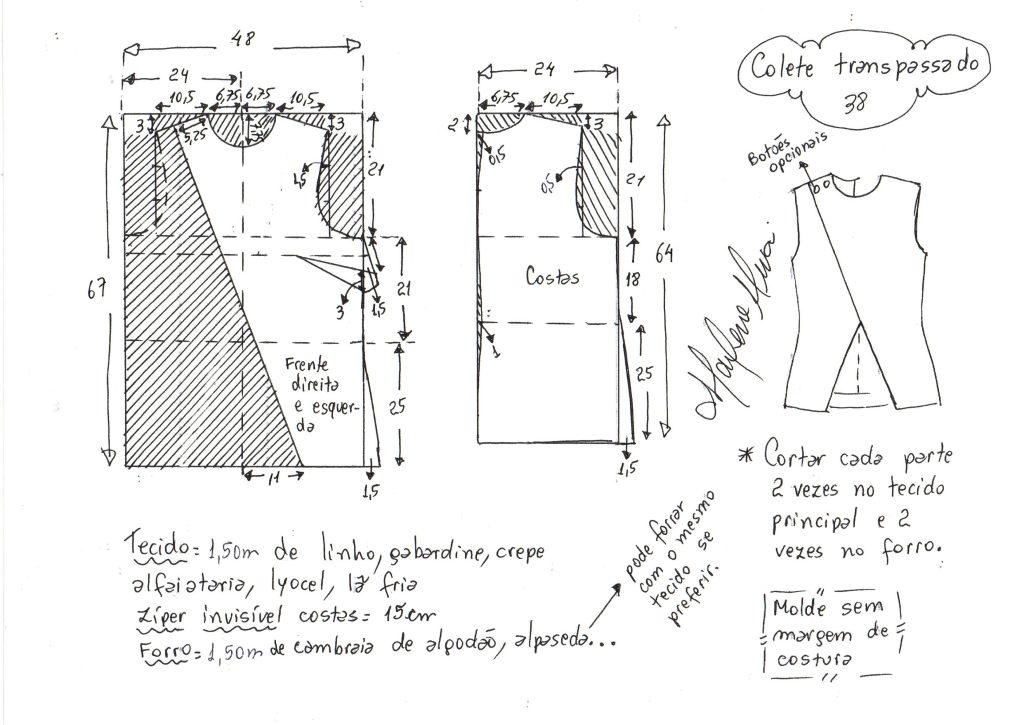 48
24
10,5 6,75 6,75 10,5
3
5,25
3
1,5
21
67
21
1,5
3
Frente
direita
e esquer-
da
25
11
1,5
24
6,75 10,5
2
3
0,5
0,5
21
64
Costas
18
1
25
1,5
Colete transpassado
38
Botões
opcionais
* Cortar cada parte
2 vezes no tecido
principal e 2
vezes no forro.
Molde sem
margem de
costura
Tecido = 1,50m de linho, gabardine, crepe
alfaiataria, lyocel, lã fria
Zíper invisível costas = 15cm
Forro = 1,50m de cambraia de algodão, alpaseda...
pode forrar
com o mesmo
tecido se
preferir.